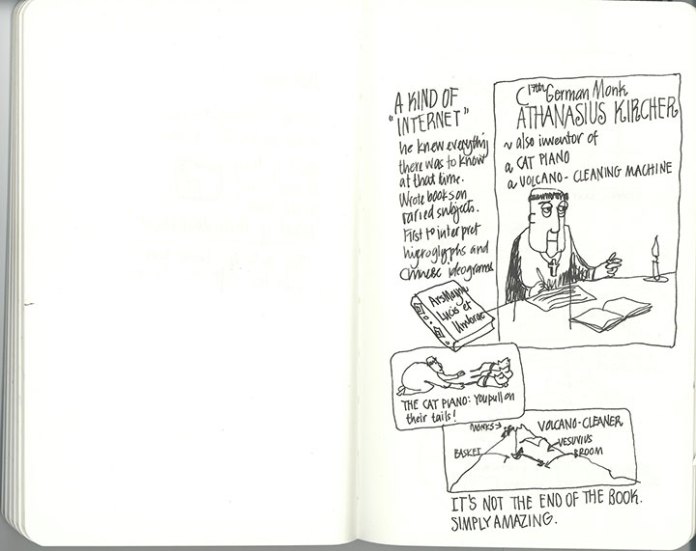 A KIND OF
"INTERNET"
he knew everything
there was to know
at that time.
Wrote books on
varied subjects.
First to interpret
hieroglyphs and
Chinese ideograms
C 17th German Monk
ATHANASIUS KIRCHER
~ also inventor of
a CAT PIANO
a VOLCANO-CLEANING MACHINE
Ars Magna
Lucis et
Umbrae
THE CAT PIANO: You pull on
their tails!
MONKS→
VOLCANO-CLEANER
VESUVIUS
BASKET
BROOM
IT'S NOT THE END OF THE BOOK.
SIMPLY AMAZING.